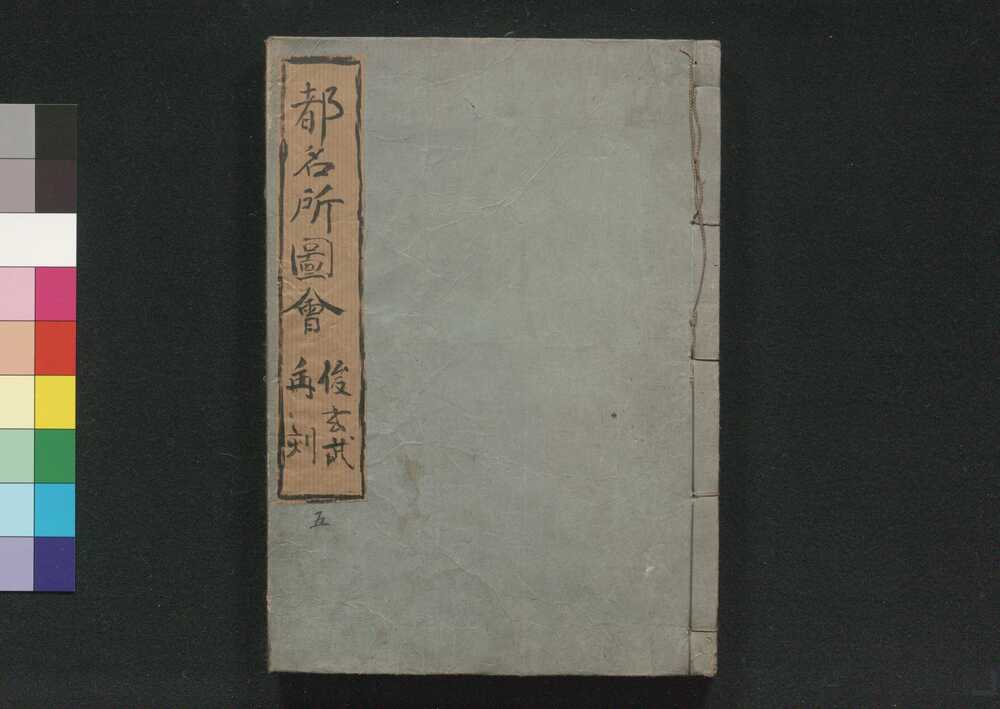 都名所圖會
俊玄武
再刻
五